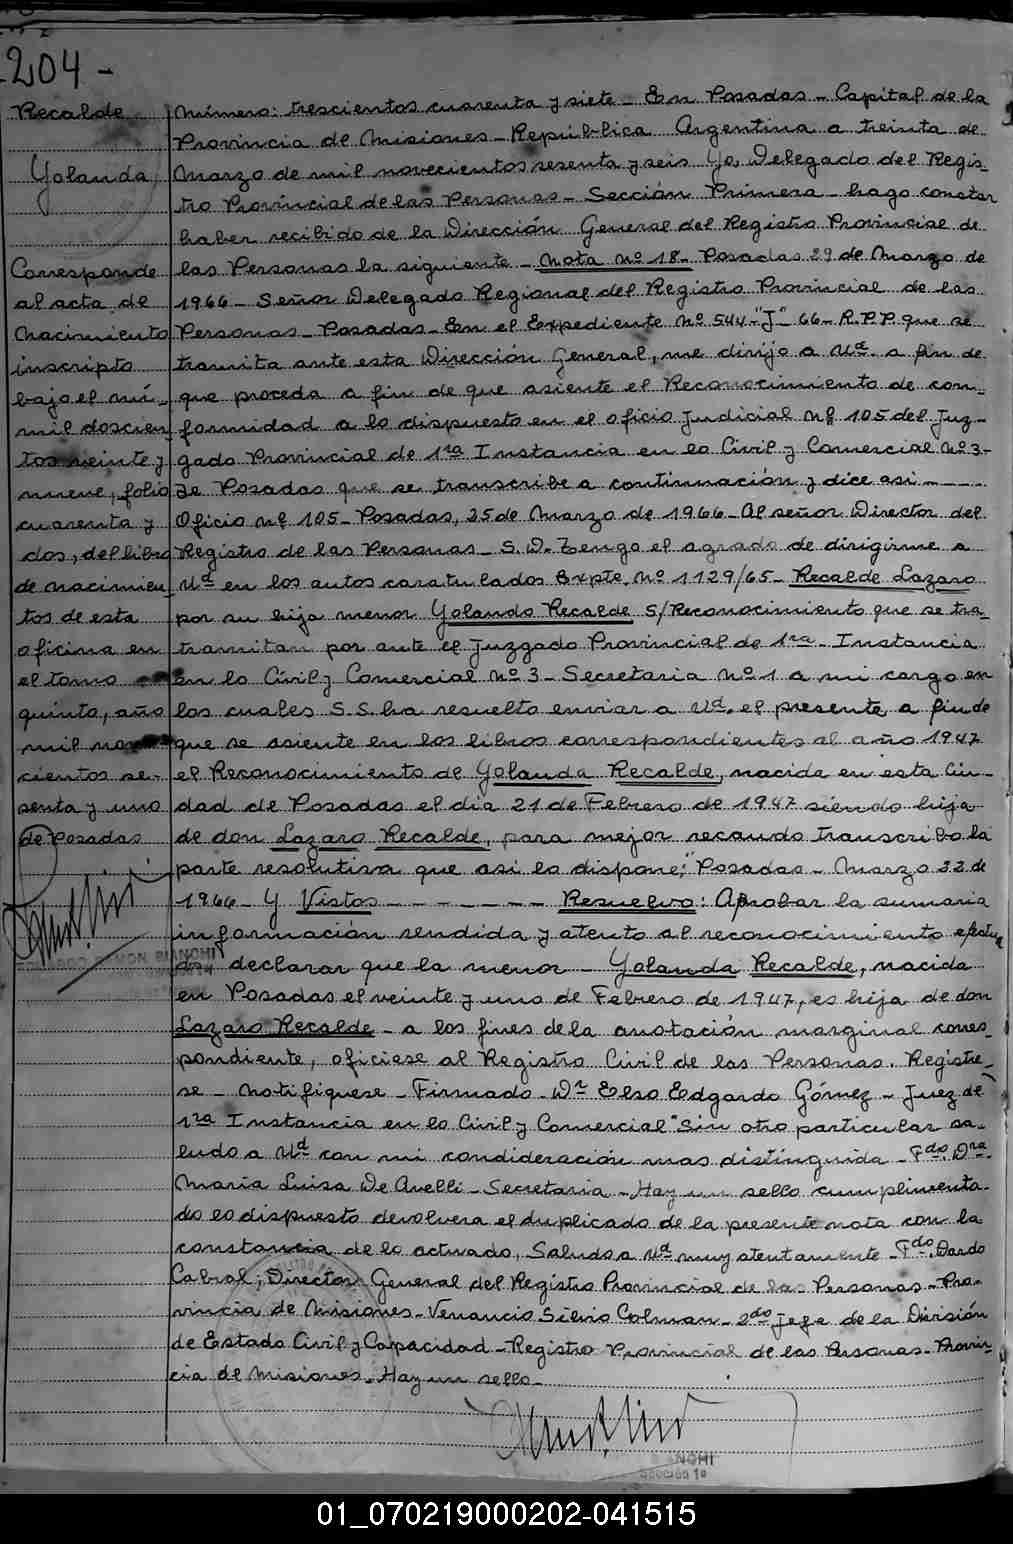 204 -
Recalde
Yolanda
Corresponde
al acta de
Nacimiento
inscripto
bajo el nú-
mil doscien
tos veinte y
nueve, folio
cuarenta y
dos, del libro
de nacimien
tos de esta
oficina en
el tomo
quinto, año
mil nove
cientos se-
senta y uno
de Posadas
Número: trescientos cuarenta y siete - En Posadas - Capital de la
Provincia de Misiones - República Argentina a treinta de
Marzo de mil novecientos sesenta y seis Yo, Delegado del Regis-
tro Provincial de las Personas - Sección Primera - hago constar
haber recibido de la Dirección General del Registro Provincial de
las Personas la siguiente - Nota Nº 18 - Posadas 29 de Marzo de
1966 - Señor Delegado Regional del Registro Provincial de las
Personas - Posadas - En el Expediente Nº 544-"J"-66 - R.P.P. que se
tramita ante esta Dirección General, me dirijo a Ud. a fin de
que proceda a fin de que asiente el Reconocimiento de con-
formidad a lo dispuesto en el oficio Judicial Nº 105 del Juz-
gado Provincial de 1ra Instancia en lo Civil y Comercial Nº 3 -
de Posadas que se transcribe a continuación y dice asi - - - -
Oficio Nº 105 - Posadas, 25 de Marzo de 1966 - Al señor Director del
Registro de las Personas - S. D. Tengo el agrado de dirigirme a
Ud en los autos caratulados Expte. Nº 1129/65 - Recalde Lazaro
por su hija menor Yolanda Recalde S/Reconocimiento que se tra-
tramitan por ante el Juzgado Provincial de 1ra - Instancia
en lo Civil y Comercial Nº 3 - Secretaria Nº 1 a mi cargo en
los cuales S.S. ha resuelto enviar a Ud. el presente a fin de
que se asiente en los libros correspondientes al año 1947
el Reconocimiento de Yolanda Recalde, nacida en esta Ciu-
dad de Posadas el dia 21 de Febrero de 1947 siendo hija
de don Lazaro Recalde, para mejor recaudo transcribo la
parte resolutiva que asi lo dispone: "Posadas - Marzo 22 de
1966 - Y Vistos - - - - - - - Resuelvo: Aprobar la sumaria
información rendida y atento al reconocimiento efectua
do, declarar que la menor - Yolanda Recalde, nacida
en Posadas el veinte y uno de Febrero de 1947, es hija de don
Lazaro Recalde - a los fines de la anotación marginal corres-
pondiente, oficiese al Registro Civil de las Personas. Registre-
se - Notifiquese - Firmado - Dr Elso Edgardo Gómez - Juez de
1ra Instancia en lo Civil y Comercial" Sin otro particular sa-
ludo a Ud con mi condideración mas distinguida - Fdo. Dra.
Maria Luisa De Avelli - Secretaria - Hay un sello cumplimenta-
do lo dispuesto devolvera el duplicado de la presente nota con la
constancia de lo actuado, Saludo a Ud muy atentamente - Fdo. Dardo
Cabral, Director General del Registro Provincial de las Personas - Pro-
vincia de Misiones - Venancio Silvio Colman - 2do Jefe de la División
de Estado Civil y Capacidad - Registro Provincial de las Personas - Provin-
cia de Misiones. Hay un sello -
RAMON BIANCHI
01_070219000202-041515